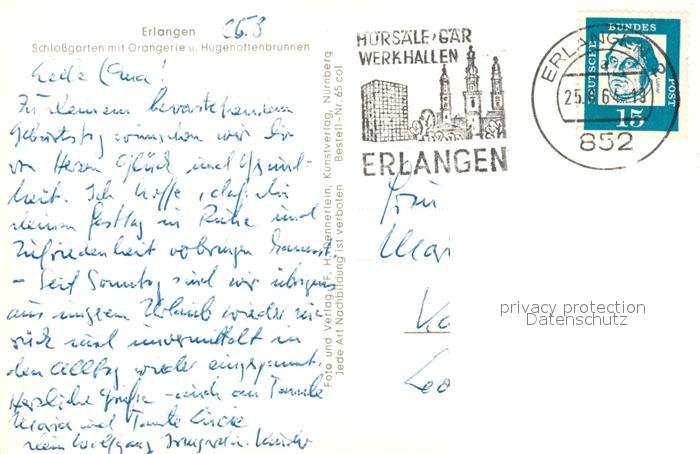 Erlangen 25.8
Schloßgarten mit Orangerie u. Hugenottenbrunnen
Liebe Oma!
Zu deinem bevorstehenden
Geburtstag wünschen wir Dir
von Herzen Glück und Gesund-
heit. Ich hoffe, daß du
deinen Festtag in Ruhe und
Zufriedenheit verbringen kannst.
- Seit Sonntag sind wir übrigens
aus unserem Urlaub wieder zu-
rück und unvermittelt in
den Alltag wieder eingespannt.
Herzliche Grüße - auch an Tante
Maria und Tante
dein Wolfgang Kinder
Foto und Verlag: F. Kunstverlag, Nürnberg
Jede Art Nachbildung ist verboten Bestell-Nr. 65 col
HÖRSÄLE, GÄR
WERKHALLEN
ERLANGEN
ERLANGEN
a
25. 6 -18
852
DEUTSCHE BUNDES POST
15
Frau
Mar
privacy protection
Datenschutz